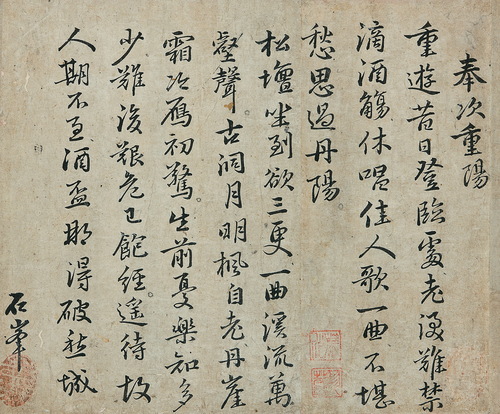 奉次重陽
重遊昔日登臨處老淚難禁
滴酒觴休唱佳人歌一曲不堪
愁思過丹陽
松壇坐到欲三更一曲溪流萬
壑聲古洞月明楓自老丹崖
霜冷鴈初驚生前憂樂知多
少難後艱危已飽經遙待故
人期不至酒盃那得破愁城
石峯